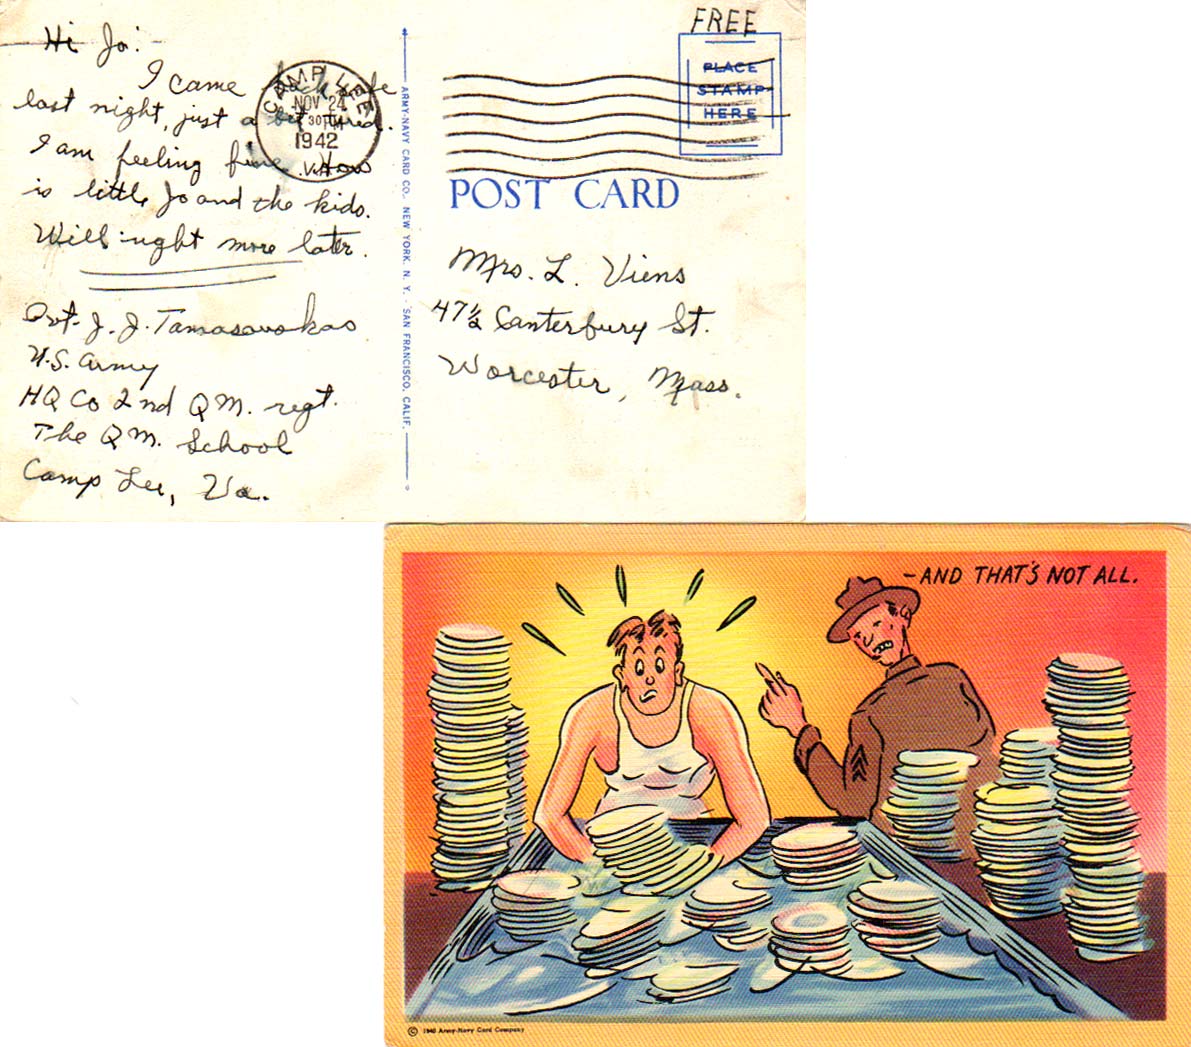 Hi Jo:
I came back safe
last night, just a bit tired.
I am feeling fine. How
is little Jo and the kids.
Will wright more later.
Pvt. J. J. Tamasavakas
U.S. Army
HQ Co 2nd QM. regt.
The QM. School
Camp Lee, Va.
CAMP LEE
NOV 24
30 PM
1942
VA.
ARMY-NAVY CARD CO. NEW YORK, N. Y. - SAN FRANCISCO, CALIF.
FREE
PLACE
STAMP
HERE
POST CARD
Mrs. L. Viens
47½ Canterbury St.
Worcester, Mass.
—AND THAT'S NOT ALL.
© 1940 Army-Navy Card Company